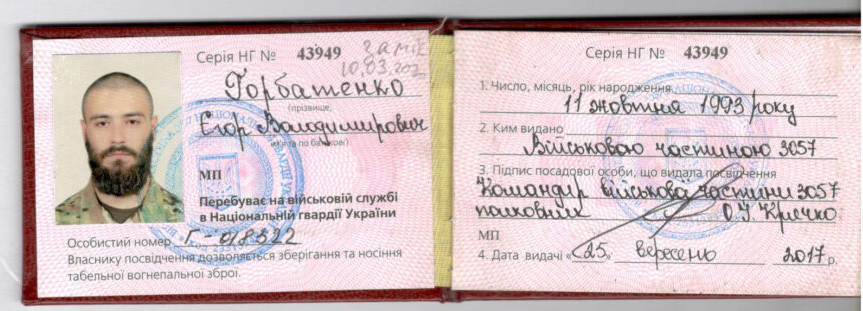 Серія НГ № 43949
10.03.202
Горбатенко
(прізвище,
Єгор Володимирович
ім'я та по батькові)
МП
Перебуває на військовій службі
в Національній гвардії України
Особистий номер Г-018322
Власнику посвідчення дозволяється зберігання та носіння
табельної вогнепальної зброї.
Серія НГ № 43949
1. Число, місяць, рік народження
11 жовтня 1993 року
2. Ким видано
Військовою частиною 3057
3. Підпис посадової особи, що видала посвідчення
Командир військова частини 3057
полковник
МП
4. Дата видачі «25» вересень 2017 р.